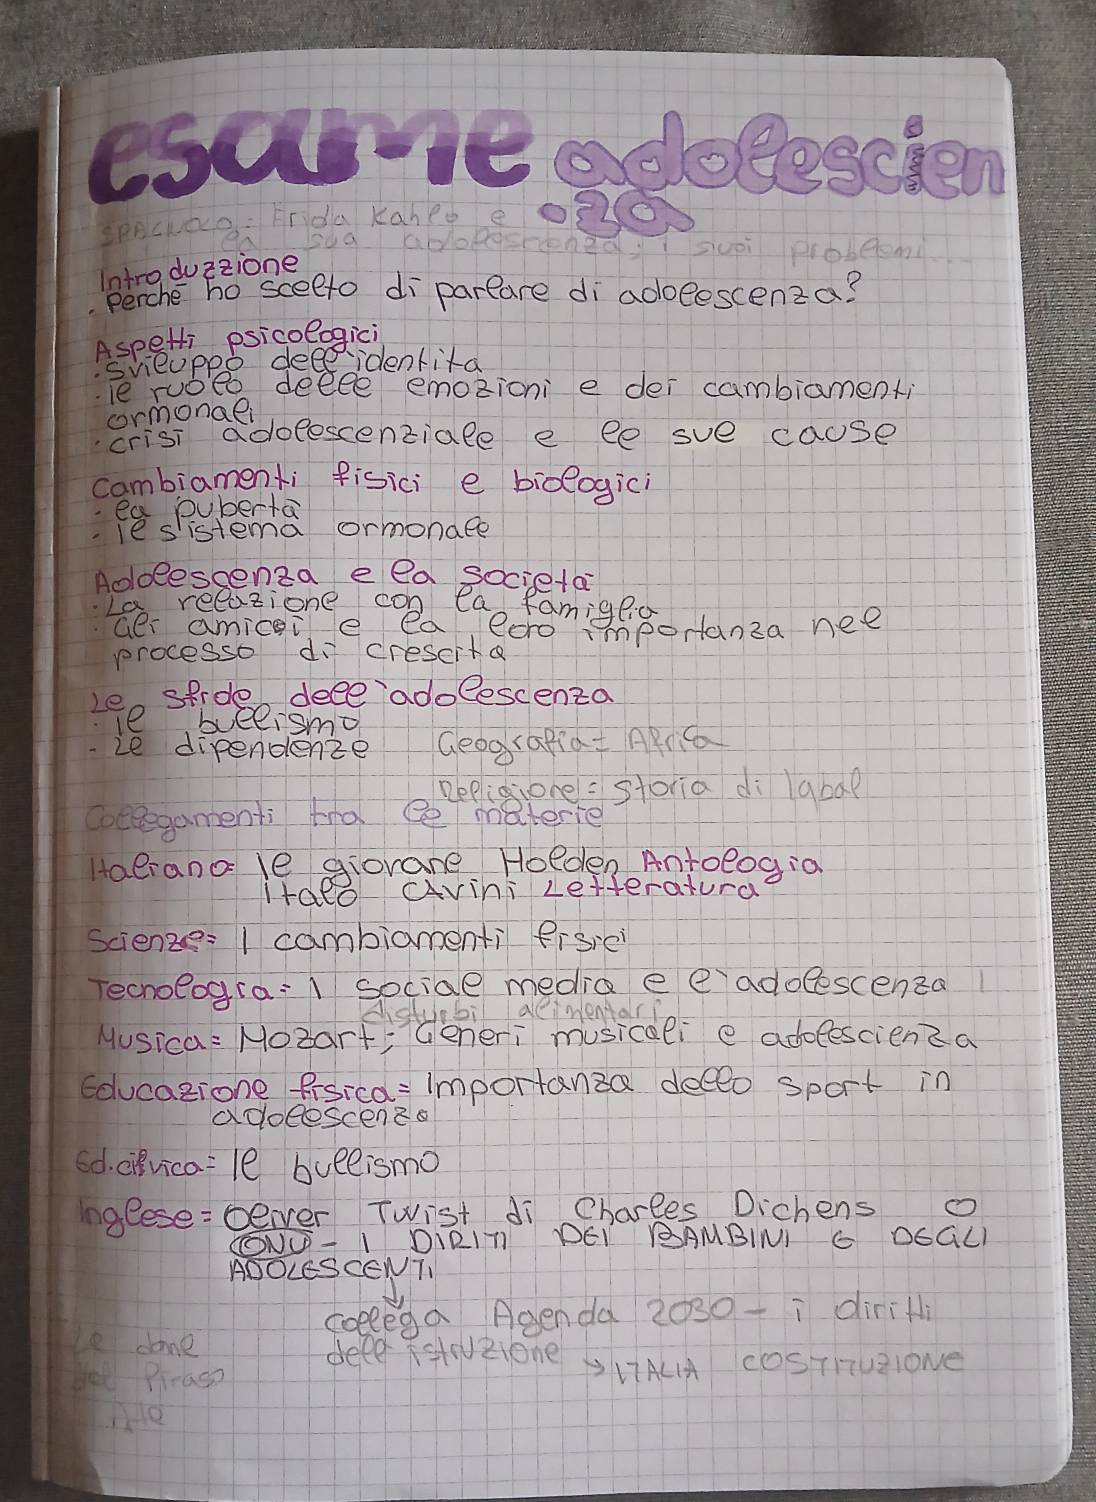 esame adolescien
za
SPAGNOLO: Frida Kahlo e
la sua adolescenza; i suoi problemi...
Introduzzione
. Perché ho scelto di parlare di adolescenza?
Aspetti psicologici
. sviluppo dell'identita
. il ruolo delle emozioni e dei cambiamenti
ormonali
. crisi adolescenziale e le sue cause
cambiamenti fisici e biologici
. la pubertà
. il sistema ormonale
Adolescenza e la società
. La relazione con la famiglia
. Gli amici e la loro importanza nel
processo di crescita
Le sfide dell'adolescenza
. il bullismo
. Le dipendenze Geografia= Africa
Religione= storia di
Collegamenti tra le materie
Italiano= Il giovane Holden Antologia
Italo Cavini Letteratura
Scienze= I cambiamenti fisici
Tecnologia= I social media e l'adolescenza
disturbi alimentari
Musica= Mozart; Generi musicali e adolescienza
Educazione fisica= importanza dello sport in
adolescenza
Ed.civica= Il bullismo
Inglese= Oliver Twist di Charles Dichens o
ONU - I DIRITTI DEI BAMBINI E DEGLI
ADOLESCENTI
↓
collega Agenda 2030 - i diritti
dell'istruzione → ITALIA COSTITUZIONE
Le done
del